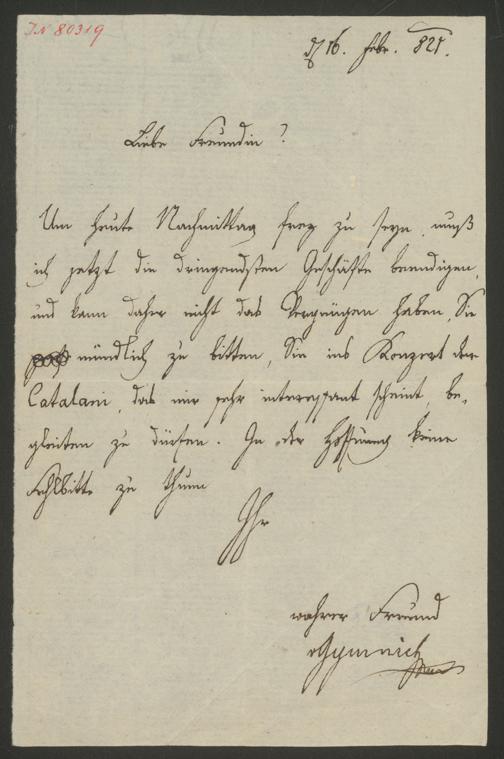 IN 80319
d 16. Febr. 821.
Liebe Freundin!
Um heute Nachmittag frey zu seyn, muß
ich jetzt die dringendsten Geschäfte beendigen,
und kann daher nicht das Vergnügen haben, Sie
mündlich zu bitten, Sie ins Konzert der
Catalani, das mir sehr interessant scheint, be-
gleiten zu dürfen. In der Hoffnung keine
Fehlbitte zu thun
Ihr
wahrer Freund
Gymnich